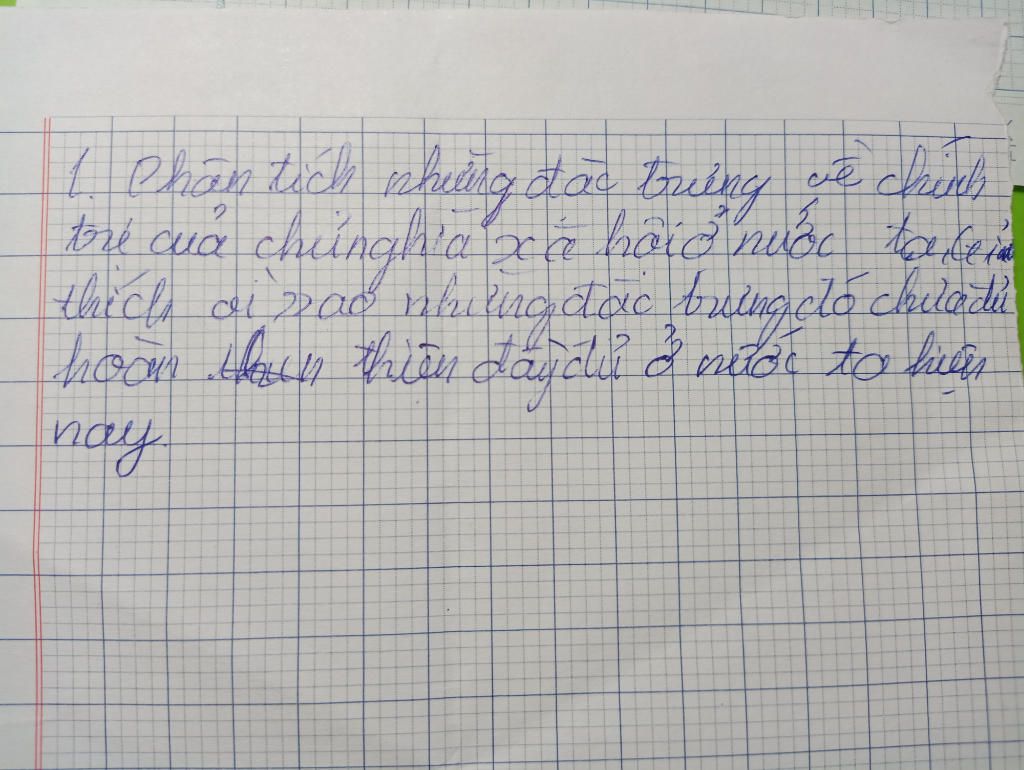 1. Phân tích những đặc trưng về chính
trị của chủ nghĩa xã hội ở nước ta,
thích vì sao những đặc trưng đó chưa đủ
hoàn thiện đầy đủ ở nước ta hiện
nay.